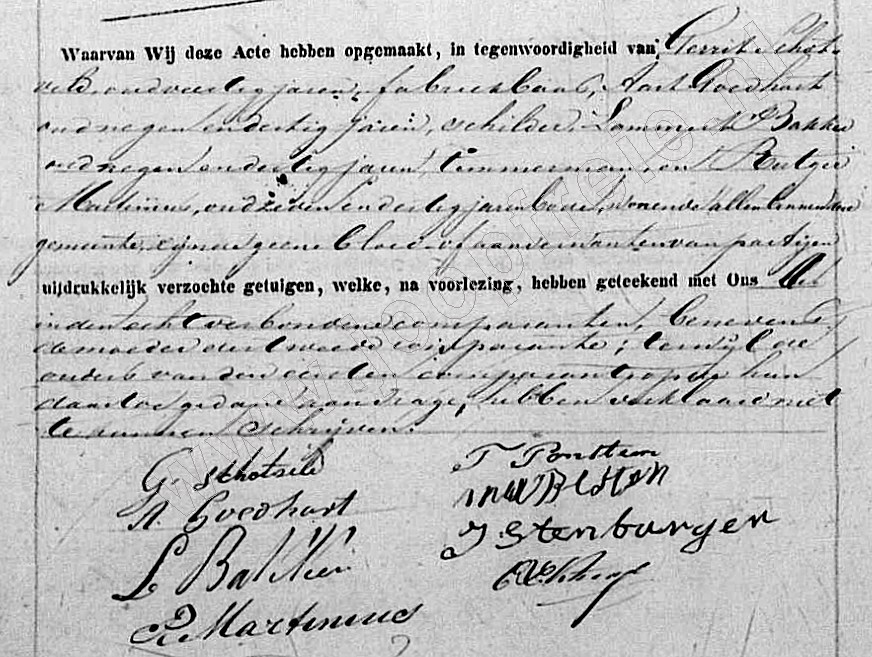 Waarvan Wij deze Acte hebben opgemaakt, in tegenwoordigheid van Gerrit Schots
veld, oud veertig jaren, fabrieksbaas, Aart Goedhart
oud negen en dertig jaren, schilder, Lammert Bakker
oud negen en dertig jaren, timmerman, en Rutger
Martinus, oud zeven en dertig jaren bode, wonende allen binnen deze
gemeente, zijnde geene bloed- of aanverwanten van partijen
uitdrukkelijk verzochte getuigen, welke, na voorlezing, hebben geteekend met Ons
in den echt verbondene comparanten, benevens
de moeder der tweede comparante; terwijl de
ouders van den eersten comparant op de hun
daartoe gedane aanvrage, hebben verklaard niet
te kunnen schrijven.
G. Schotsveld
A. Goedhart
L. Bakker
R. Martinus
T
J Stenburger